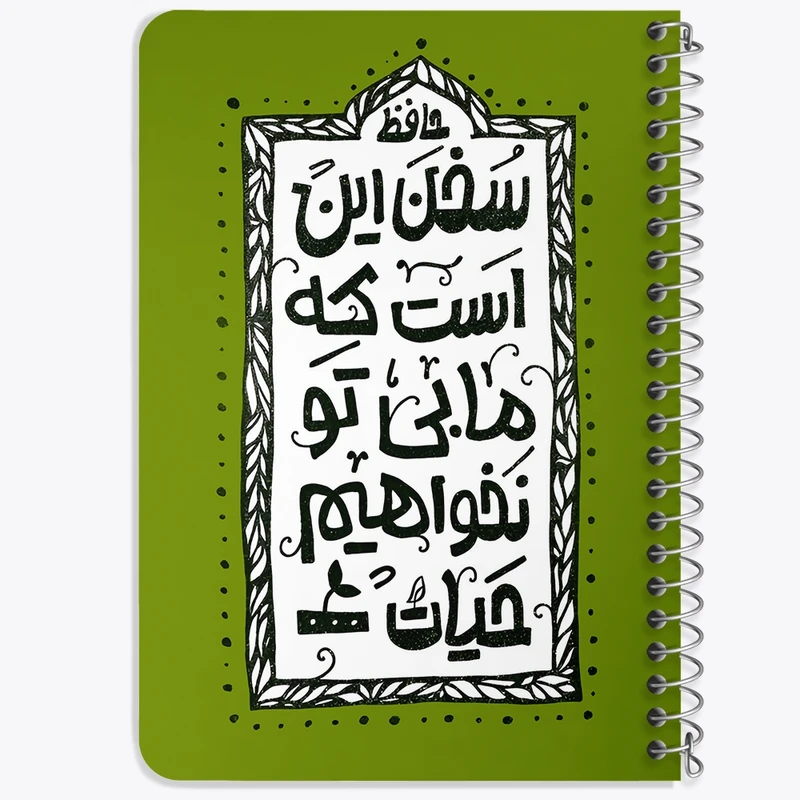 حافظ
سُخَن این
اَست که
ما بی تَو
نَخواهیم
حَیات